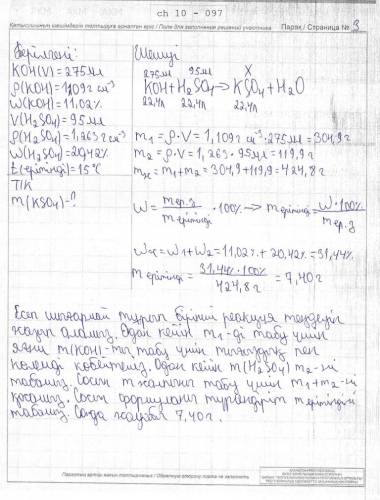 ch 10 - 097
Қатысушының шешімдерін толтыруға арналған өріс / Поле для заполнения решений участника
Парақ / Страница № 3
Берілгені:
KOH(V) = 275мл
ρ(KOH) = 1,109г см⁻³
w(KOH) = 11,02%
V(H₂SO₄) = 95мл
ρ(H₂SO₄) = 1,263 г см⁻³
w(H₂SO₄) = 20,42%
t(ерітінді) = 15°C
Т/К
m(KSO₄) - ?
Шешуі
275мл 95мл X
KOH + H₂SO₄ → KSO₄ + H₂O
22,4л 22,4л 22,4л
m₁ = ρ · V = 1,109г см⁻³ · 275мл = 304,9г
m₂ = ρ · V = 1,263 · 95мл = 119,9г
m = m₁ + m₂ = 304,9 + 119,9 = 424,8г
w = m ер.з / m ерітінді · 100% → m ерітінді = w · 100% / m ер.з
w = w₁ + w₂ = 11,02% + 20,42% = 31,44%
m ерітінді = 31,44% · 100% / 424,8г = 7,40г
Есеп шығармай тұрып бірінші реакция теңдеуін
жазып аламыз. Одан кейін m₁-ді табу үшін
яғни m(KOH)-тың табу үшін тығыздық пен
көлемді көбейтеміз. Одан кейін m(H₂SO₄) m₂-ні
табамыз. Сосын m табу үшін m₁ + m₂-ні
қосамыз. Сосын формуланы түрлендіріп m ерітіндіні
табамыз. Сонда жауабы 7,40г.